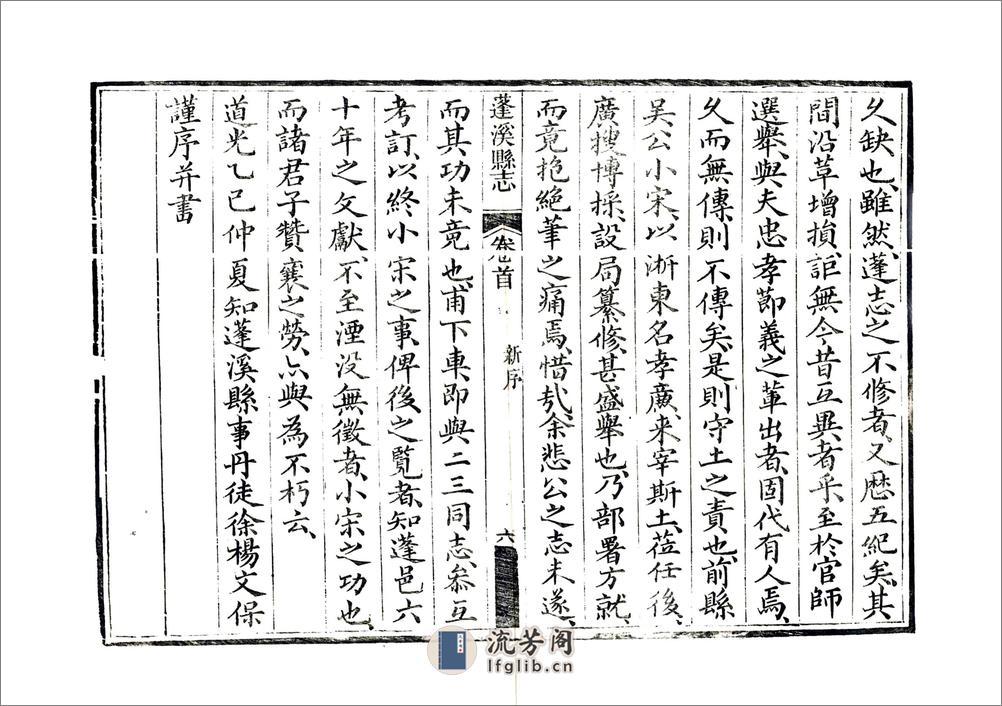 乆缺也、雖然、蓬志之不修者、又歷五紀矣、其
間沿革增損、詎無今昔互異者乎、至於官師
選舉、與夫忠孝節義之輩出者、固代有人焉、
乆而無傳、則不傳矣、是則守土之責也、前縣
吳公小宋、以浙東名孝廉、来宰斯土、莅任後、
廣搜博採、設局纂修、甚盛舉也、乃部署方就、
而竟抱絶筆之痛焉、惜㢤、余悲公之志未遂、
蓬溪縣志
卷首
新序
六
而其功未竟也、甫下車、即與二三同志、叅互
考訂、以終小宋之事、俾後之覽者、知蓬邑六
十年之文獻、不至湮没無徵者、小宋之功也、
而諸君子贊襄之勞、亦與為不朽云、
道光乙巳仲夏知蓬溪縣事丹徒徐楊文保
謹序并書
流芳阁
lfglib.cn